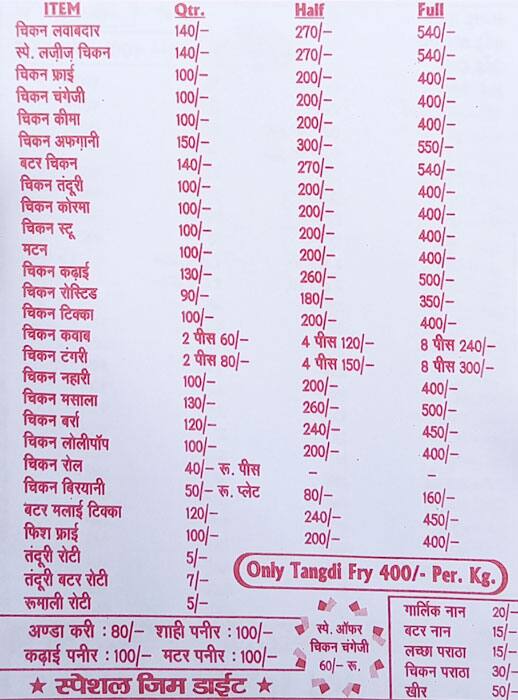 ITEM Qtr. Half Full
चिकन लवाबदार 140/– 270/– 540/–
स्पे. लज़ीज़ चिकन 140/– 270/– 540/–
चिकन फ्राई 100/– 200/– 400/–
चिकन चंगेजी 100/– 200/– 400/–
चिकन कीमा 100/– 200/– 400/–
चिकन अफगानी 150/– 300/– 550/–
बटर चिकन 140/– 270/– 540/–
चिकन तंदूरी 100/– 200/– 400/–
चिकन कोरमा 100/– 200/– 400/–
चिकन स्टू 100/– 200/– 400/–
मटन 100/– 200/– 400/–
चिकन कढ़ाई 130/– 260/– 500/–
चिकन रोस्टिड 90/– 180/– 350/–
चिकन टिक्का 100/– 200/– 400/–
चिकन कवाब 2 पीस 60/– 4 पीस 120/– 8 पीस 240/–
चिकन टंगरी 2 पीस 80/– 4 पीस 150/– 8 पीस 300/–
चिकन नहारी 100/– 200/– 400/–
चिकन मसाला 130/– 260/– 500/–
चिकन बर्रा 120/– 240/– 450/–
चिकन लोलीपॉप 100/– 200/– 400/–
चिकन रोल 40/– रू. पीस – –
चिकन बिरयानी 50/– रू. प्लेट 80/– 160/–
बटर मलाई टिक्का 120/– 240/– 450/–
फिश फ्राई 100/– 200/– 400/–
तंदूरी रोटी 5/–
तंदूरी बटर रोटी 7/–
रूमाली रोटी 5/–
Only Tangdi Fry 400/- Per. Kg.
अण्डा करी : 80/– शाही पनीर : 100/–
कढ़ाई पनीर : 100/– मटर पनीर : 100/–
★ स्पेशल जिम डाईट ★
स्पे. ऑफर
चिकन चंगेजी
60/– रू.
गार्लिक नान 20/–
बटर नान 15/–
लच्छा पराठा 15/–
चिकन पराठा 30/–
खीर 50/–